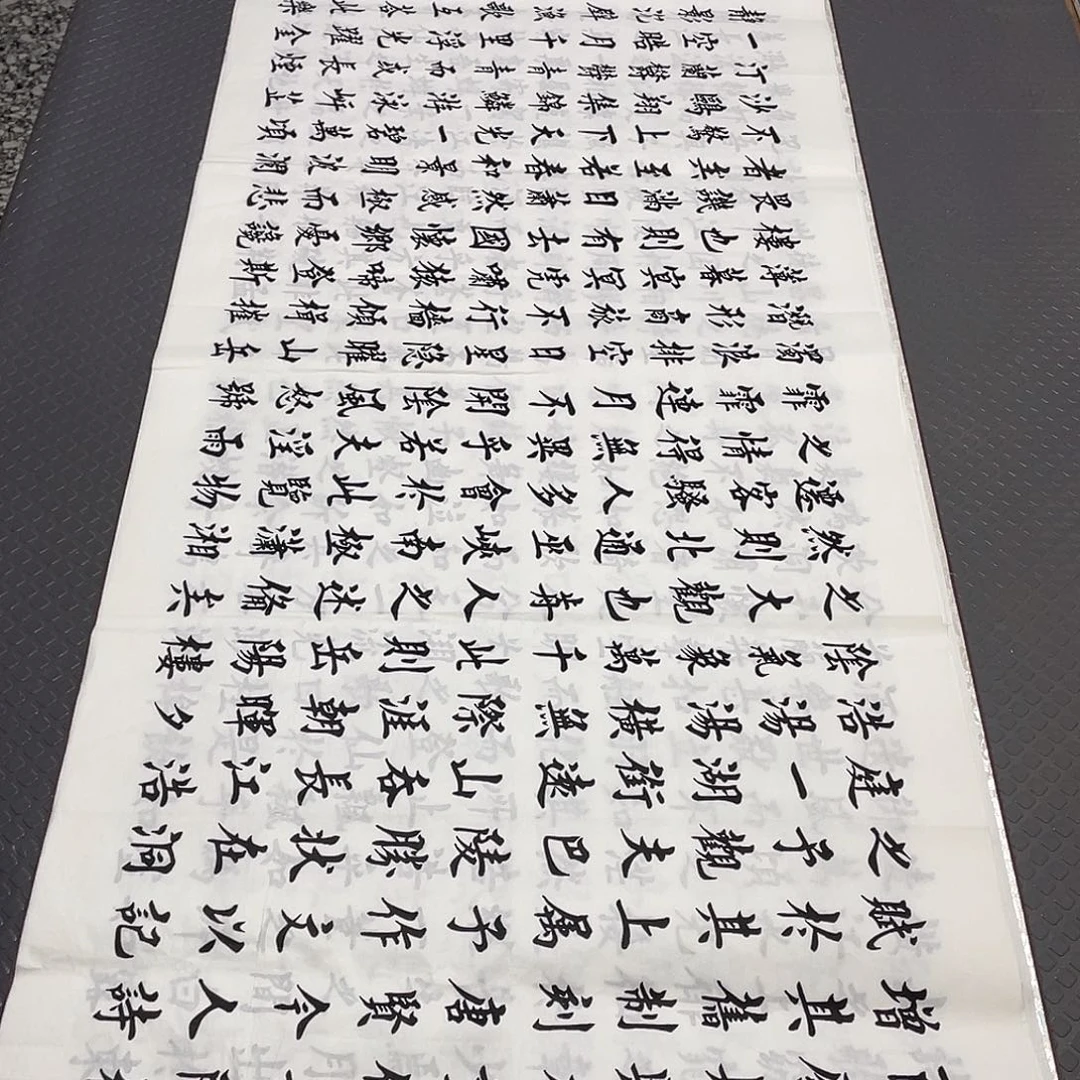 增其舊制刻唐賢今人詩
賦於其上屬予作文以記
之予觀夫巴陵勝狀在洞
庭一湖銜遠山吞長江浩
浩湯湯橫無際涯朝暉夕
陰氣象萬千此則岳陽樓
之大觀也前人之述備矣
然則北通巫峽南極瀟湘
遷客騷人多會於此覽物
之情得無異乎若夫淫雨
霏霏連月不開陰風怒號
濁浪排空日星隱曜山岳
潛形商旅不行檣傾楫摧
薄暮冥冥虎嘯猿啼登斯
樓也則有去國懷鄉憂讒
畏譏滿目蕭然感極而悲
者矣至若春和景明波瀾
不驚上下天光一碧萬頃
沙鷗翔集錦鱗游泳岸芷
汀蘭鬱鬱青青而或長煙
一空皓月千里浮光躍金
靜影沉璧漁歌互答此樂